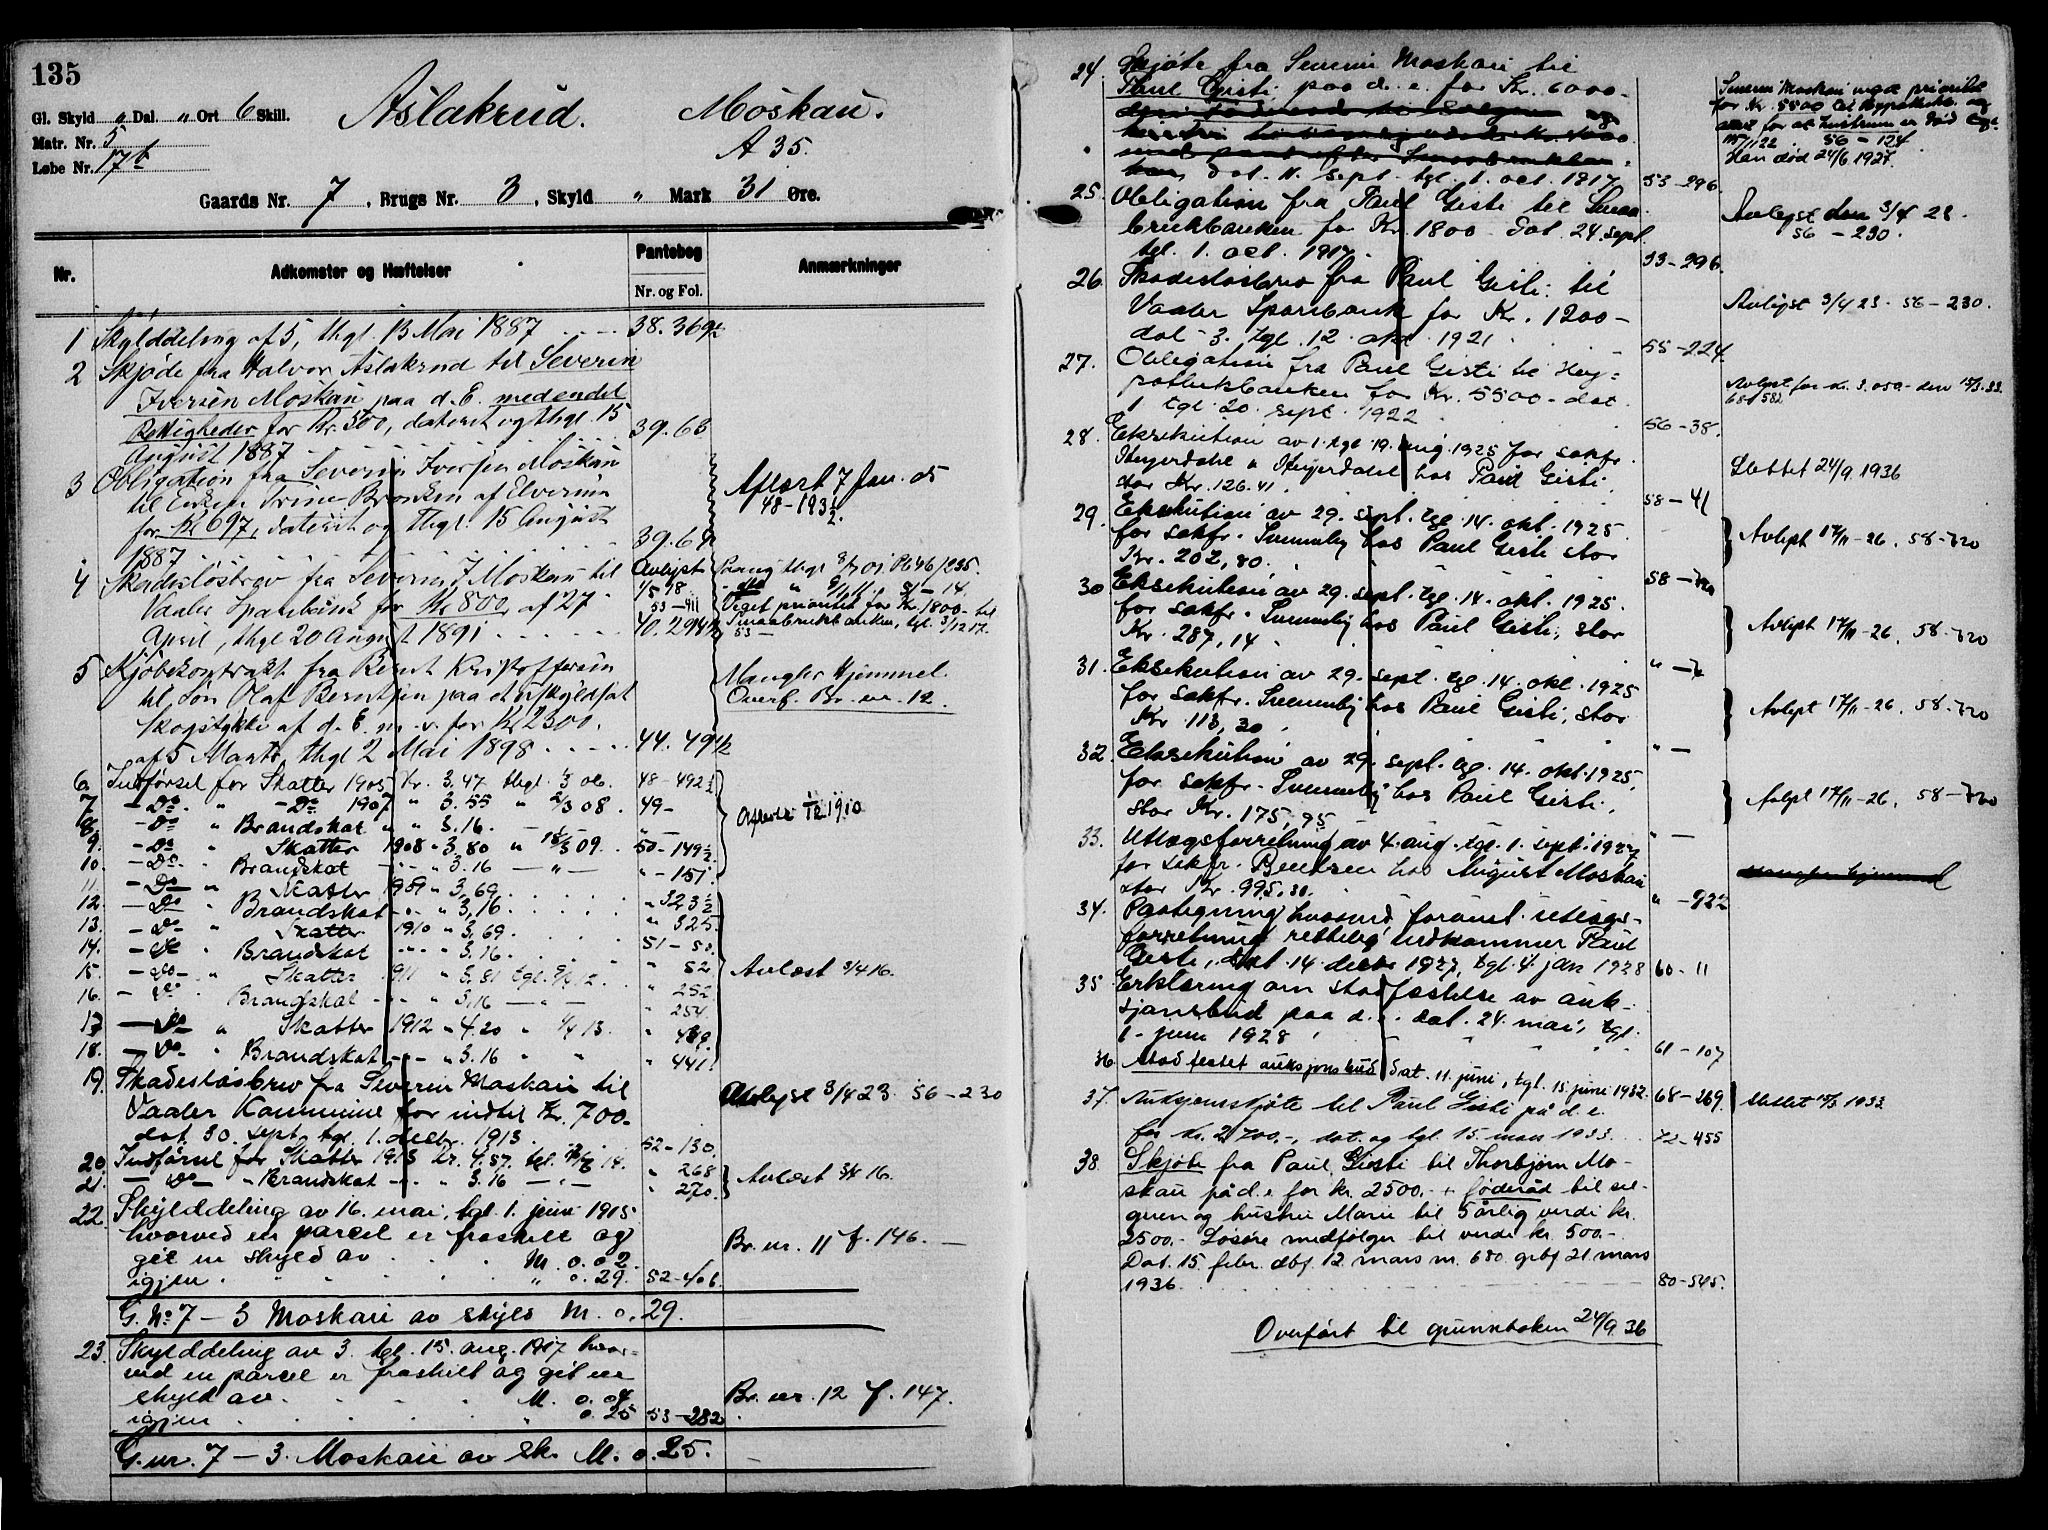 135
Gl. Skyld " Dal. " Ort 6 Skill.
Matr. Nr. 5
Løbe Nr. 17b
Aslakrud. Moskau.
A 35.
Gaards Nr. 7, Brugs Nr. 3, Skyld " Mark 31 Øre.
Nr. Adkomster og Hæftelser Pantebog Anmærkninger
Nr. og Fol.
1 Skylddeling af 5, thgl. 13 Mai 1887 38. 369½
2 Skjøde fra Halvor Aslakrud til Severin
Iversen Moskau paa d. E. med endel
Rettigheder for Kr. 500, dateret og thgl. 15
August 1887 39. 63
3 Obligation fra Severin Iversen Moskau
til Enken Trine Bronken af Elverum
for Kr 697, dateret og thgl. 15 August
1887 39. 64
Aflæst 7 Jan. 05
48-193½.
4 Skadesløsbrev fra Severin I Moskau til
Vaaler Sparebank for Kr 800, af 27
April, thgl 20 August 1891 40. 294½
Avlyst
1/5 98.
53-411
Viget prioritet for Kr. 1800- til
Smaabrukbanken, tgl. 3/12 17.
53-
5 Kjøbekontrakt fra Bernt Kristoffersen
til Søn Olaf Berntsen paa et uskyldsat
Skogstykke af d. E. m. v. for Kr 2300.
af 5 Marts, thgl 2 Mai 1898 44. 491½
Mangler Hjemmel.
Overf. Br. nr. 12.
6. Indførsel for Skatter 1905 Kr. 3,47 thgl. 06. 48-492½
7 - Do. " - Do 1907 " 3.55 " 2/3 08. 49-
8. - Do " Brandskat " " 3.16.
9. - Do " Skatter 1908 " 3.80 " 18/3 09. 50-149½
10. - Do. " Brandskat " 3.16 - " - " - 151.
11. - Do - " Skatter 1909 " 3,69.
12. - Do " Brandskat " 3,16 " 323½
13. - Do - " Skatter 1910 " 3,69. " 325.
14. - Do " Brandskat " 3.16. 51-50.
15. - Do - " Skatter 1911 " 3.81 tgl. 12. " 52.
16. - Do " Brandskat " 3,16 " 252.
" 254.
17 - Do " Skatter 1912 " 4.20 " 1/4 13. " 439.
18. - Do " Brandskat " 3.16 " " " 441.
Avlæst 3/4 16.
19. Skadesløsbrev fra Severin Moskau til
Vaaler Kommune for indtil Kr. 700.
dat. 30. sept. tgl. 1. decbr. 1913. 52-130.
Avlyst 3/4 23. 56-230
20. Indførsel for Skatter 1913 Kr. 4.57. tgl. 14. " 268
21. - Do - " Brandskat " 3.16 - " - " 270.
Avlæst 3/4 16.
22. Skylddeling av 16. mai, tgl. 1. juni 1915
hvorved en parcel er fraskilt og
git en skyld av M. 0.02.
igjen " 0.29. 52-406.
Br. nr. 11 f. 146.
G. No 7 - 3 Moskau av skyld M. 0.29.
23. Skylddeling av 3. tgl. 15. aug. 1917 hvor-
ved en parcel er fraskilt og git en
skyld av M. 0.04
igjen 0.25 53-282
Br. nr. 12 f. 147.
G. nr. 7 - 3. Moskau av sk. M. 0.25.
24 Skjøte fra Severin Moskau til
Paul Gisti paa d. e. for Kr. 6000-
dat. 11. sept. tgl. 1. oct. 1917 53-296.
Severin Moskau veget prioritet
for Kr. 5500 til Hypothekb. og
for at hustruen er død
56-124
Han død 24/6 1927.
25. Obligation fra Paul Gisti til Smaa-
brukbanken for Kr. 1800- dat. 24. sept.
tgl. 1. oct. 1917. 53-296.
Avlyst den 3/4 23.
56-230.
26. Skadesløsbrev fra Paul Gisti til
Vaaler Sparebank for Kr. 1200-
dat- 3. tgl. 12. okt. 1921 55-224
Avlyst 3/4 23. 56-230.
27. Obligation fra Paul Gisti til Hy-
pothekbanken for Kr. 5500- dat.
1. tgl. 20. sept. 1922. 56-38.
Avlyst for kr. 3.050- den 15/3.33.
68-582
28. Eksekution av 1. tgl 19. aug. 1925 for sakfr.
Heyerdahl & Heyerdahl hos Paul Gisti.
stor Kr. 126.41. 58-41
Slettet 24/9 1936
29. Eksekution av 29. sept. tgl. 14. okt. 1925.
for sakfr. Svenneby hos Paul Gisti stor
Kr. 202,80.
Avlyst 17/11-26. 58-720
30 Eksekution av 29. sept. tgl. 14. okt. 1925.
for sakfr. Svenneby hos Paul Gisti, stor
Kr. 287,14.
Avlyst 17/11-26, 58-720
31. Eksekution av 29. sept. tgl. 14. okt. 1925
for sakfr. Svenneby hos Paul Gisti, stor
Kr 113,30.
Avlyst 17/11-26, 58-720
32. Eksekution av 29. sept. tgl. 14. okt. 1925,
for sakfr. Svenneby hos Paul Gisti,
stor Kr. 175,95
Avlyst 17/11-26, 58-720
33. Utlægsforretning av 4. aug. tgl. 1. sept. 1927
for sakfr. Bentsen hos August Moskau
stor Kr. 995,30.
34. Paategning hvorved foranst. utlægs-
forretning rettelig vedkommer Paul
Gisti, dat. 14. decbr 1927, tgl. 4. jan 1928 60-11
35. Erklæring om stadfæstelse av auk-
sjonsbud paa d. e. dat. 24. mai, tgl.
1. juni 1928 61-107
36. Stadfestet auksjonsbud dat. 11. juni, tgl. 15. juni 1932. 68-269.
Slettet 15/3 1933
37. Auksjonsskjøte til Paul Gisti på d. e.
for kr. 2700.-, dat. og tgl. 15. mars 1933. 72-455
38. Skjøte fra Paul Gisti til Thorbjørn Mo-
skau på d. e for kr. 2500.- + føderåd til sel-
geren og hustru Marie til 5 årlig verdi kr.
2500.- Løsøre medfølger til verdi kr. 500.-
Dat. 15. febr. dbf. 12. mars nr. 680 grbf 21 mars
1936 80-545.
Overført til grunnboken 24/9 36